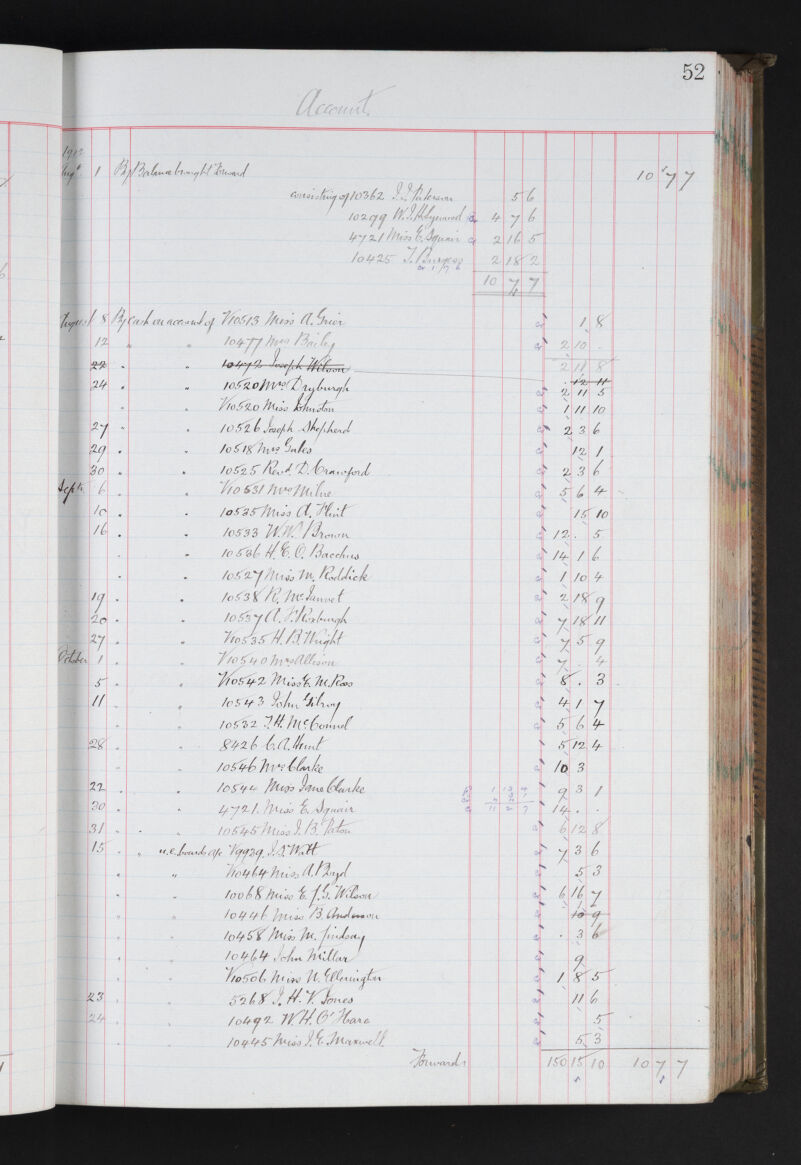 52
Account.
1913
Aug 1 By Balance brought forward 10 7 7
consisting of 10362 J. Paterson 5 6
10299 W. J. Holywood 4 7 6
4721 Miss E. Squair 2 16 5
10425 J. Burgess 2 18 2
10 7 7
August 8 By Cash on account of V10513 Miss A. Grier 1 8
12 " " 10477 Mrs Baily 2 10 .
2 11 8
22 " " 10472 Joseph Wilson 12 11
24 " " 10520 Mrs Dryburgh 2 11 5
" " V10520 Miss Johnston 1 11 10
27 " " 10526 Joseph Shepherd 2 3 6
29 " " 10518 Mrs Gales 12 1
30 " " 10525 Revd D. Crawford 2 3 6
Septr 6 " " V10531 Mrs Milne 5 6 4
10 " " 10535 Miss A. Flint 15 10
16 " " 10533 W. W. Brown 12 . 5
" " 10536 H. E. O. Bacchus 14 1 6
" " 10527 Miss M. Roddick 1 10 4
19 " " 10538 R. McJannet 2 18 9
20 " " 10537 A. F. Roxburgh 7 18 11
27 " " V10535 H. B. Wright 7 5 9
October 1 " " V10540 Mrs Allison 7 . 4
5 " " V10542 Miss E. M. Ross 8 . 3
11 " " 10543 John Gilroy 4 1 7
" " 10532 J. H. McConnel 5 6 4
28 " " 8426 C. A. Hunt 5 12 4
" " 10546 Mrs Clarke 10 3
22 " " 10544 Miss Jane Clarke 9 3 1
30 " " 4721 Miss E. Squair 14 . .
31 " " 10545 Miss J. B. Paton 6 12 8
15 " " V9929 J. S. Watt 7 3 6
" " V10464 Miss A. Boyd 5 3
" " 10068 Miss E. J. G. Wilson 6 16 7
" " 10446 Miss B. Anderson 10 9
" " 10458 Miss M. Lindsay . 3 6
" " 10464 John Millar 9
" " V10506 Miss N. Ellerington 1 8 5
23 " " 5268 J. H. V. Jones 11 6
24 " " 10492 W. H. O'Hara 5
" " 10445 Miss J. E. Maxwell 5 3
Forward 150 15 10 10 7 7